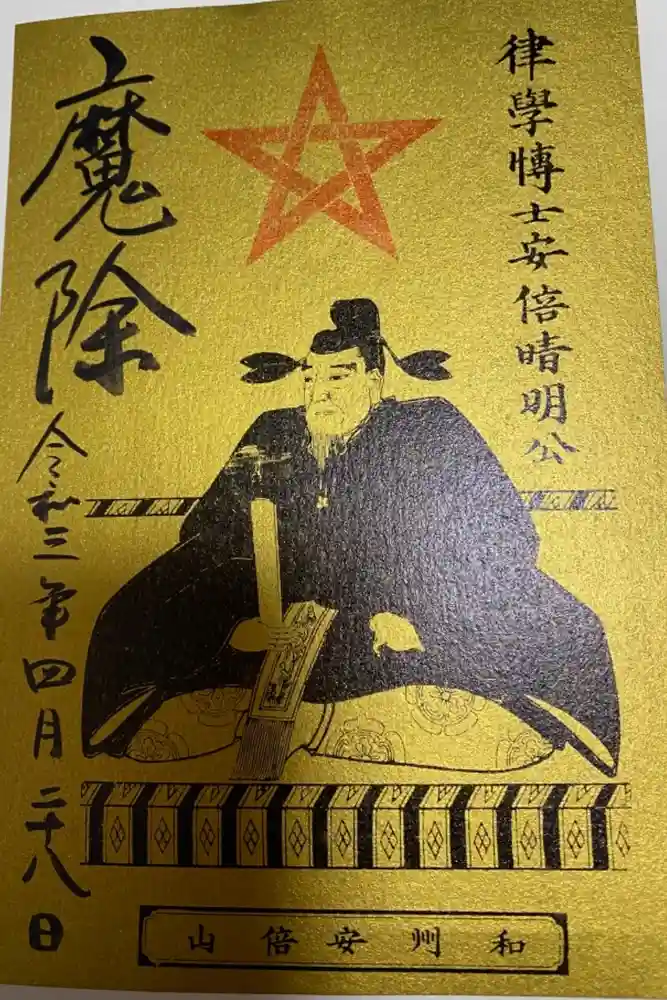 律學博士安倍晴明公
魔除
令和三年四月二十八日
和州安倍山